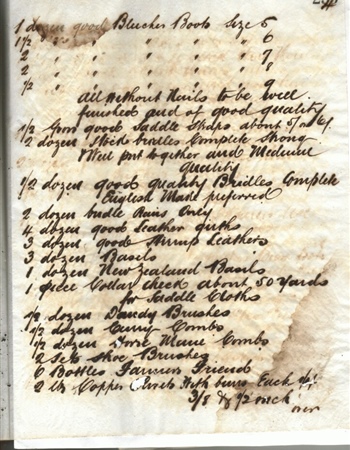 1 dozen good Blucher Boots Size 5
1 1/2 " " " " " 6
2 " " " " 7
2 " " " " 8
1/2 " " " " 9
all without Nails to be well
finished and of good quality
1/2 Gross good Saddle Straps about 5/ or 6/
2 dozen Stock bridles Complete strong
Well put together and Medium
quality
1/2 dozen good quality Bridles Complete
English Make preferred
2 dozen bridle Rains Only
4 dozen good Leather Girths
3 dozen good Stirrup Leathers
3 dozen Basils
1 dozen New Zealand Basils
1 piece Collar Check about 50 Yards
for Saddle Cloths
1/2 dozen Dandy Brushes
1/2 dozen Curry Combs
1/2 dozen Horse Mane Combs
2 Sets Shoe Brushes
6 Bottles Farmers Friend
2 lbs Copper Rivets With burrs Each
3/8 & 1/2 inch